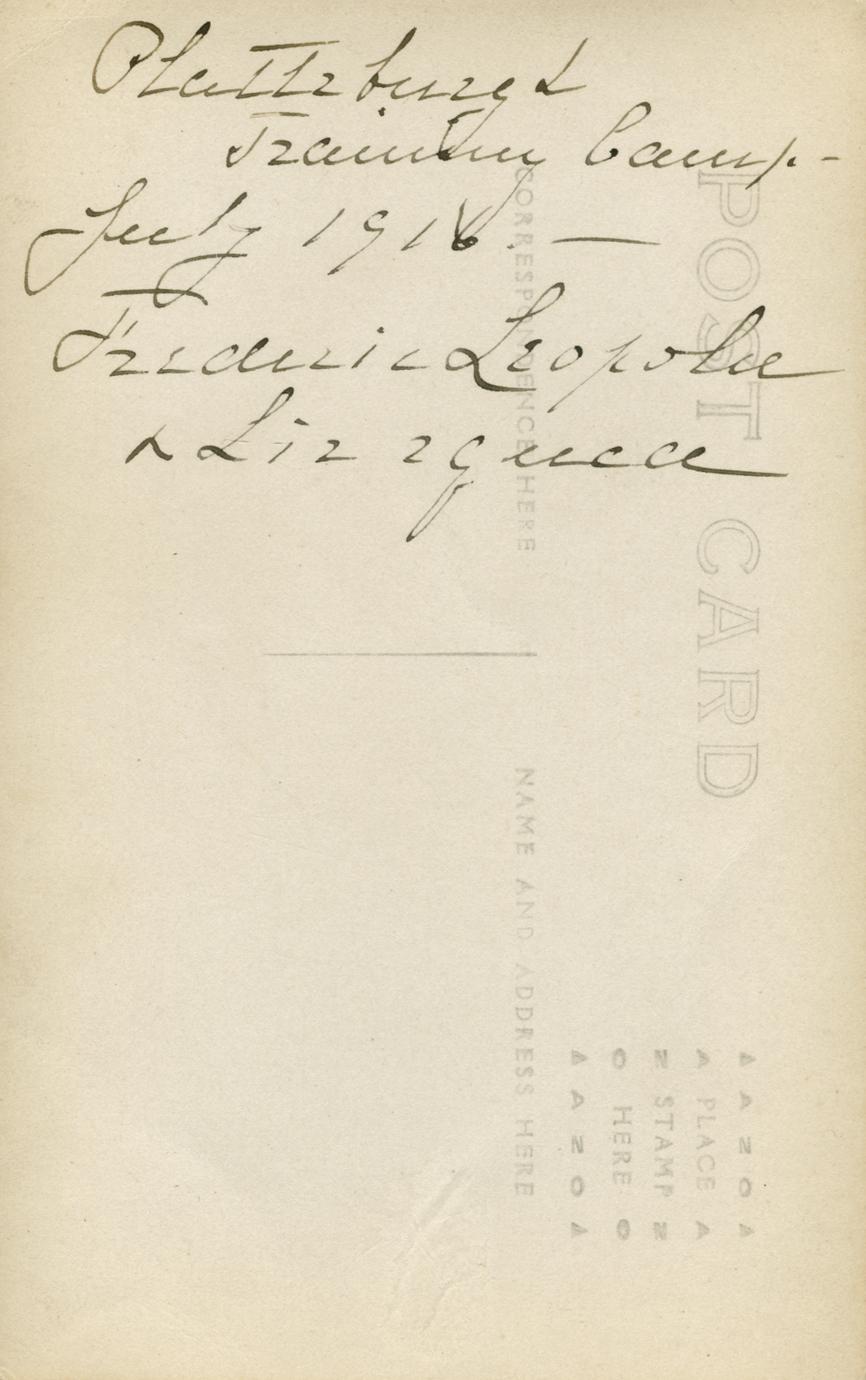 Plattsburgh
Training Camp -
July 1916. —
Frederic Leopold
&
POST CARD
CORRESPONDENCE HERE
NAME AND ADDRESS HERE
PLACE
STAMP
HERE
AZO